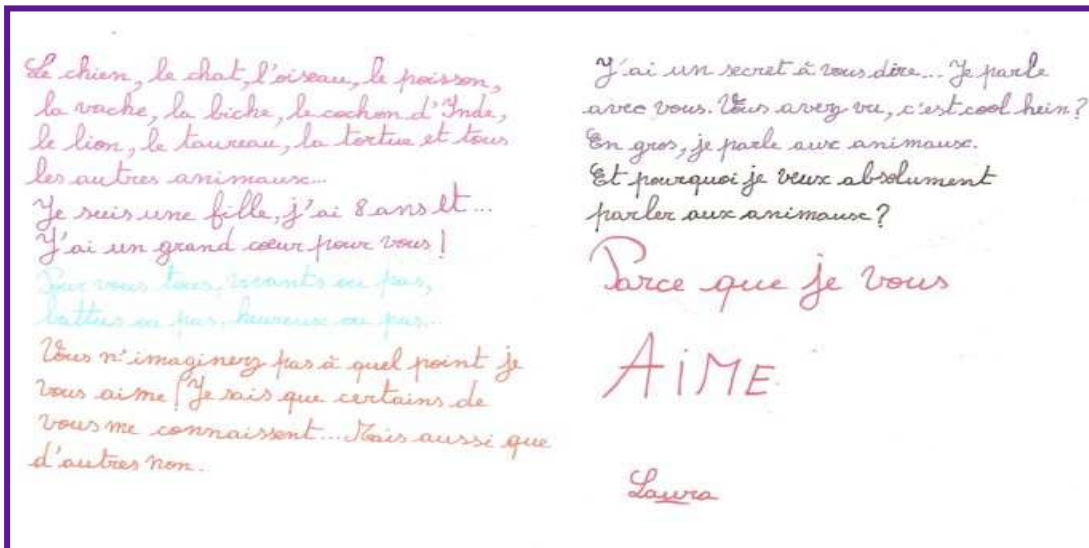 Le chien, le chat, l'oiseau, le poisson,
la vache, la biche, le cochon d'Inde,
le lion, le taureau, la tortue et tous
les autres animaux...
Je suis une fille, j'ai 8 ans et...
J'ai un grand cœur pour vous !
Pour vous tous, vivants ou pas,
battus ou pas, heureux ou pas...
Vous n'imaginez pas à quel point je
vous aime ! Je sais que certains de
vous me connaissent... Mais aussi que
d'autres non.
J'ai un secret à vous dire... Je parle
avec vous. Vous avez vu, c'est cool hein ?
En gros, je parle aux animaux.
Et pourquoi je veux absolument
parler aux animaux ?
Parce que je vous
AiME
Laura